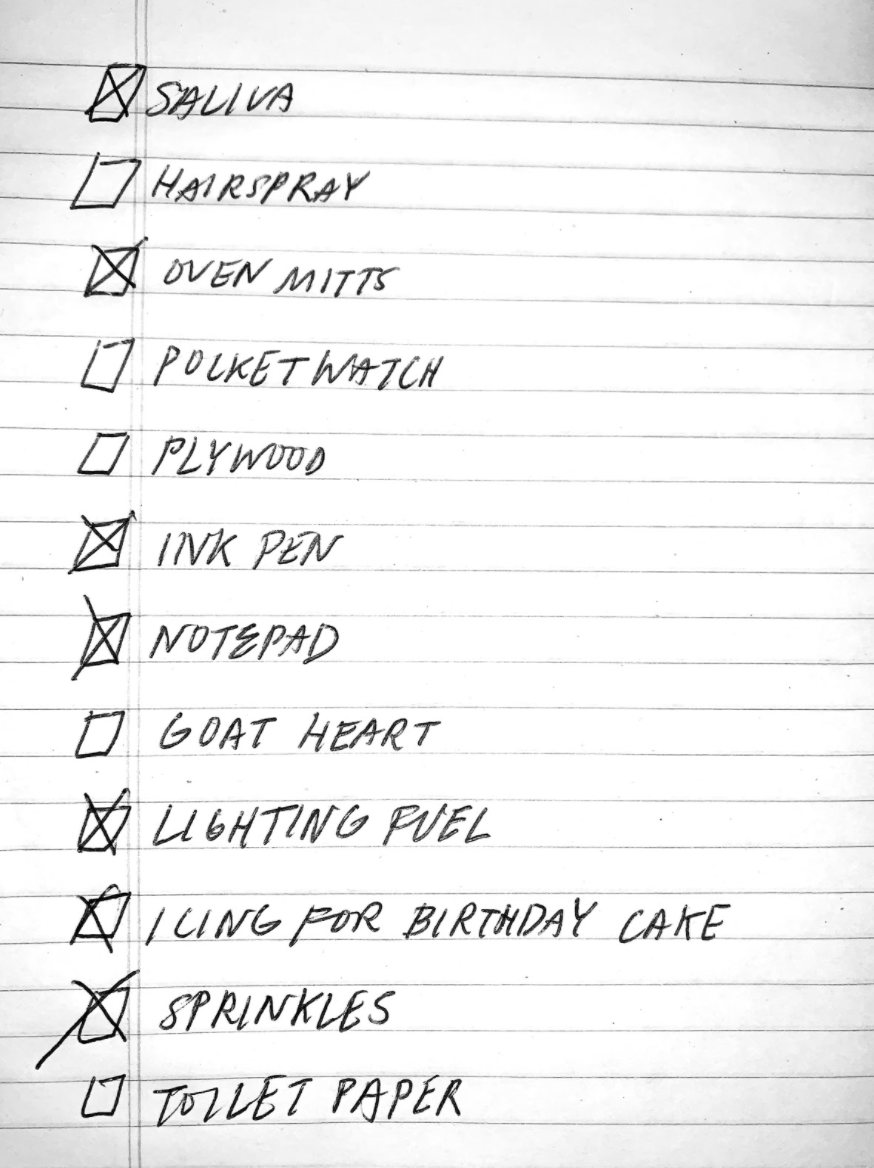 ☒ SALIVA
☐ HAIRSPRAY
☒ OVEN MITTS
☐ POCKETWATCH
☐ PLYWOOD
☒ INK PEN
☒ NOTEPAD
☐ GOAT HEART
☒ LIGHTING FUEL
☒ ICING FOR BIRTHDAY CAKE
☒ SPRINKLES
☐ TOILET PAPER